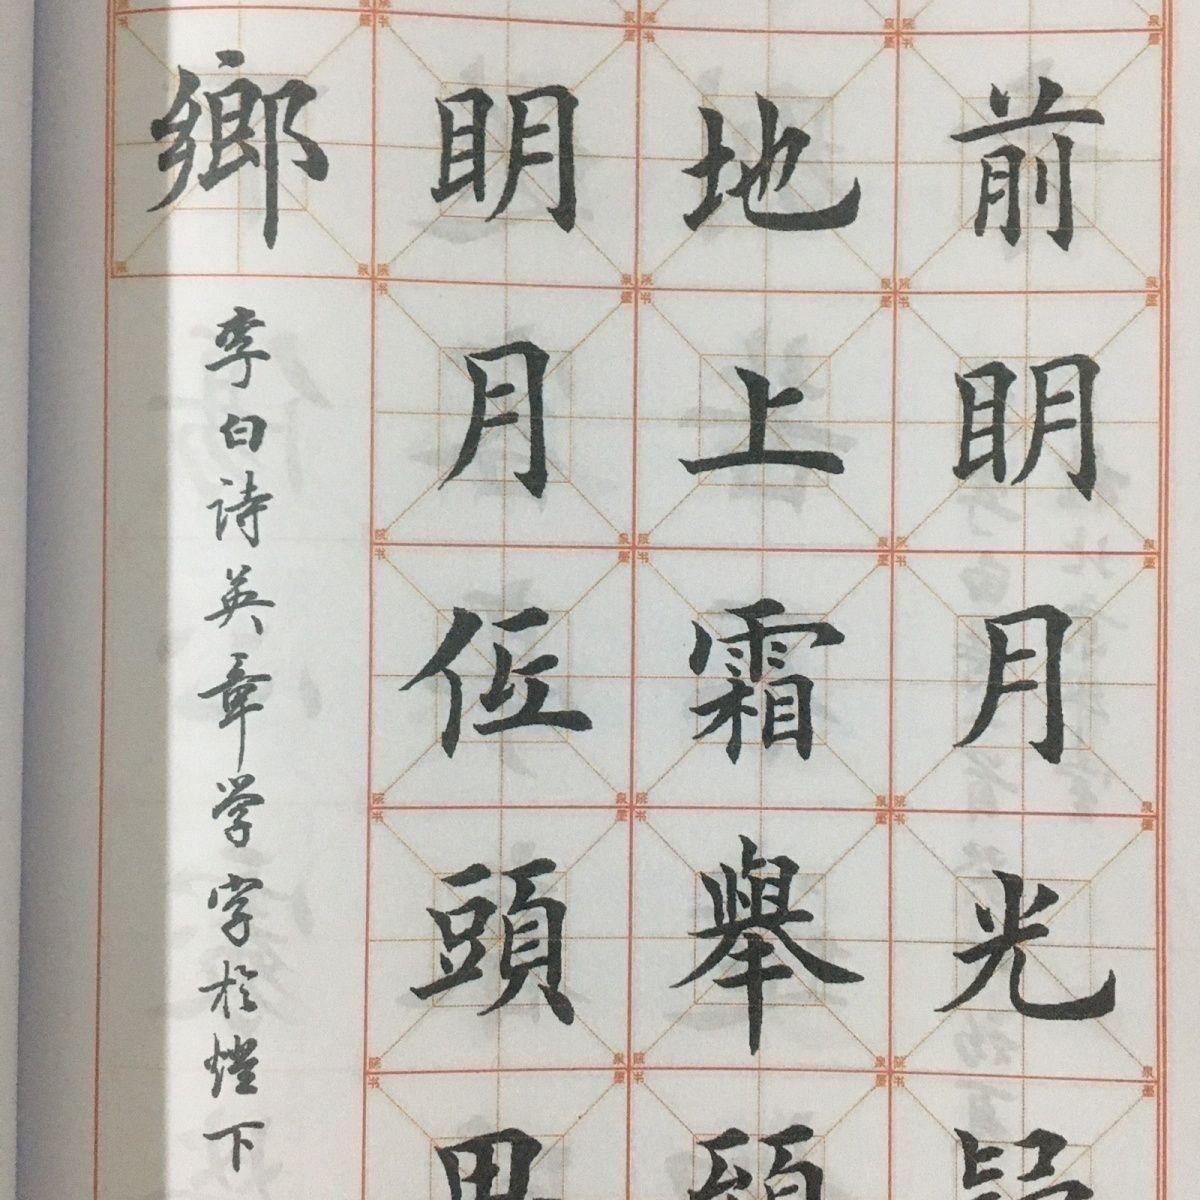 前眀月光
地上霜舉
眀月低頭
鄉
李白诗英章学字於燈下